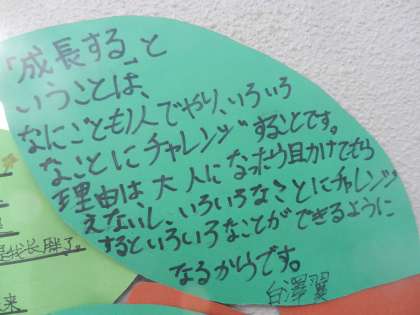 「成長する」と
いうことは、
なにごとも1人でやり、いろいろ
なことにチャレンジすることです。
理由は大人になったら助けてもら
えないし、いろいろなことにチャレンジ
するといろいろなことができるように
なるからです。
台澤翼
是我长胖了。
来